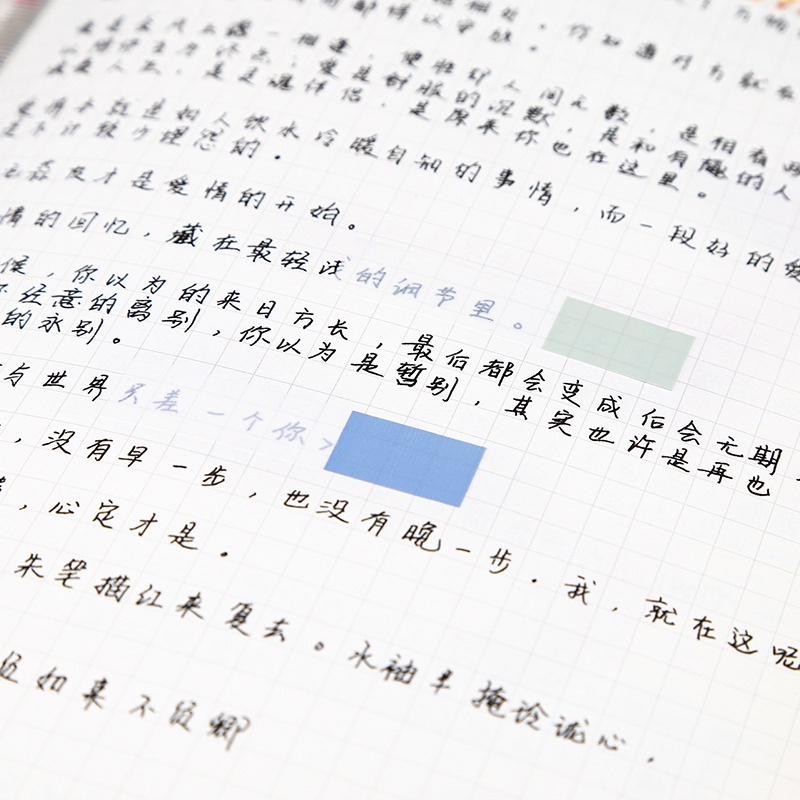 你知道对方就在
一相逢，便胜却人间无数，是相看两
终点；要是舒服的沉默，是和有趣的人
是灵魂伴侣，是原来你也在这里。
是如人饮水冷暖自知的事情，而一段好的爱
不计较少埋怨的。
才是爱情的开始。
情的回忆，藏在最轻浅的调节里。
候，你以为的来日方长，最后都会变成后会无期，
不经意的离别，你以为是暂别，其实也许是再也
的永别。
与世界只差一个你
，没有早一步，也没有晚一步．我，就在这呢
，心定才是。
朱笔描红来复去。水袖早掩诠诚心，
如来不负卿